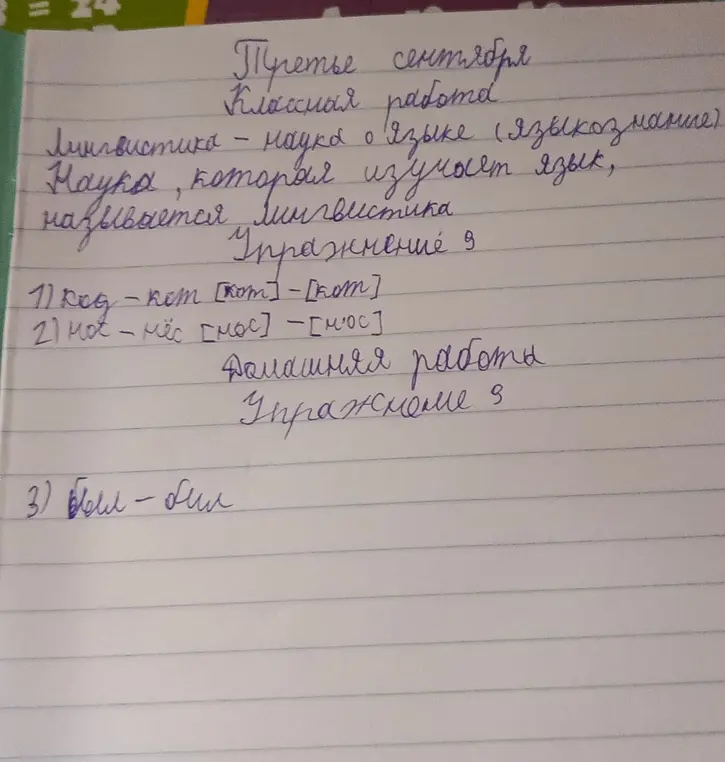 = 24
Третье сентября
Классная работа
Лингвистика – наука о языке (языкознание)
Наука, которая изучает язык,
называется лингвистика
Упражнение 9
1) Код – кот [кот] – [кот]
2) нос – нёс [нос] – [н'ос]
Домашняя работа
Упражнение 9
3) был – бил